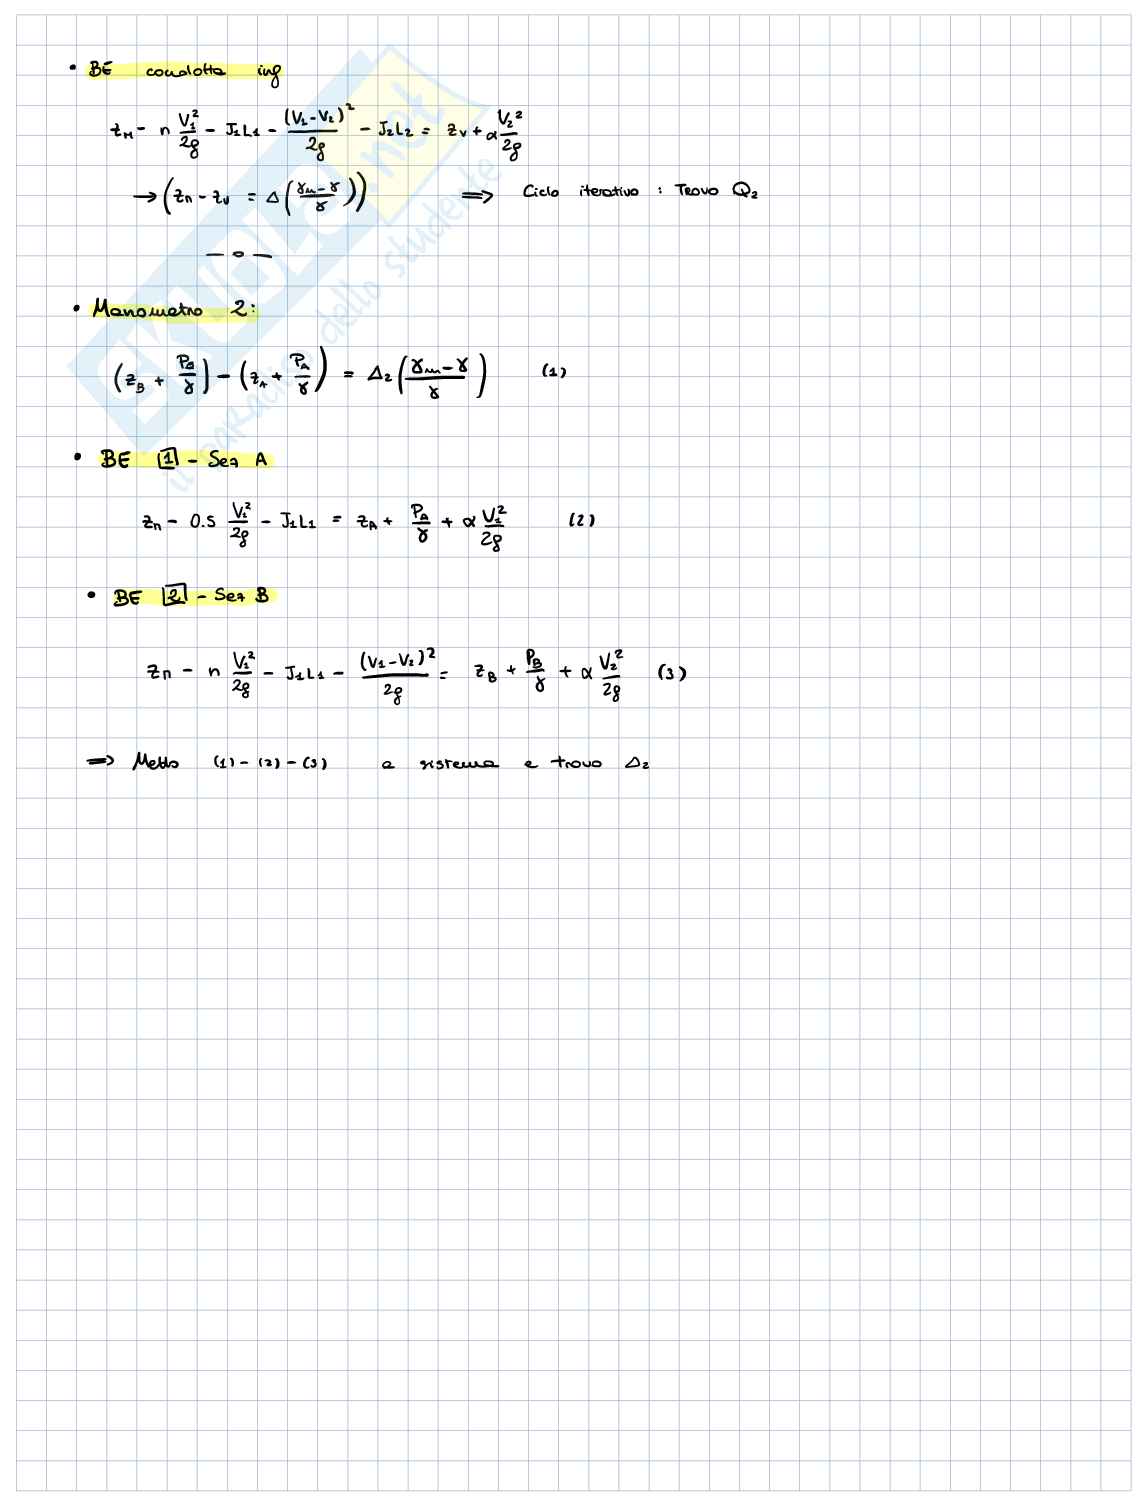 • BE condotta inf
z_M - n V₁²/2g - J₁L₁ - (V₁-V₂)²/2g - J₂L₂ = z_V + α V₂²/2g
→ (z_n - z_v = Δ((γ_m - γ)/γ)) ⟹ Ciclo iterativo : Trovo Q₂
— o —
• Manometro 2:
(z_B + P_B/γ) - (z_A + P_A/γ) = Δ₂((γ_m - γ)/γ) (1)
• BE 1 - Sez A
z_n - 0.5 V₁²/2g - J₁L₁ = z_A + P_A/γ + α V₁²/2g (2)
• BE 2 - Sez B
z_n - n V₁²/2g - J₁L₁ - (V₁-V₂)²/2g = z_B + P_B/γ + α V₂²/2g (3)
⟹ Metto (1) - (2) - (3) a sistema e trovo Δ₂
SKUOLA.net
il paradiso dello studente